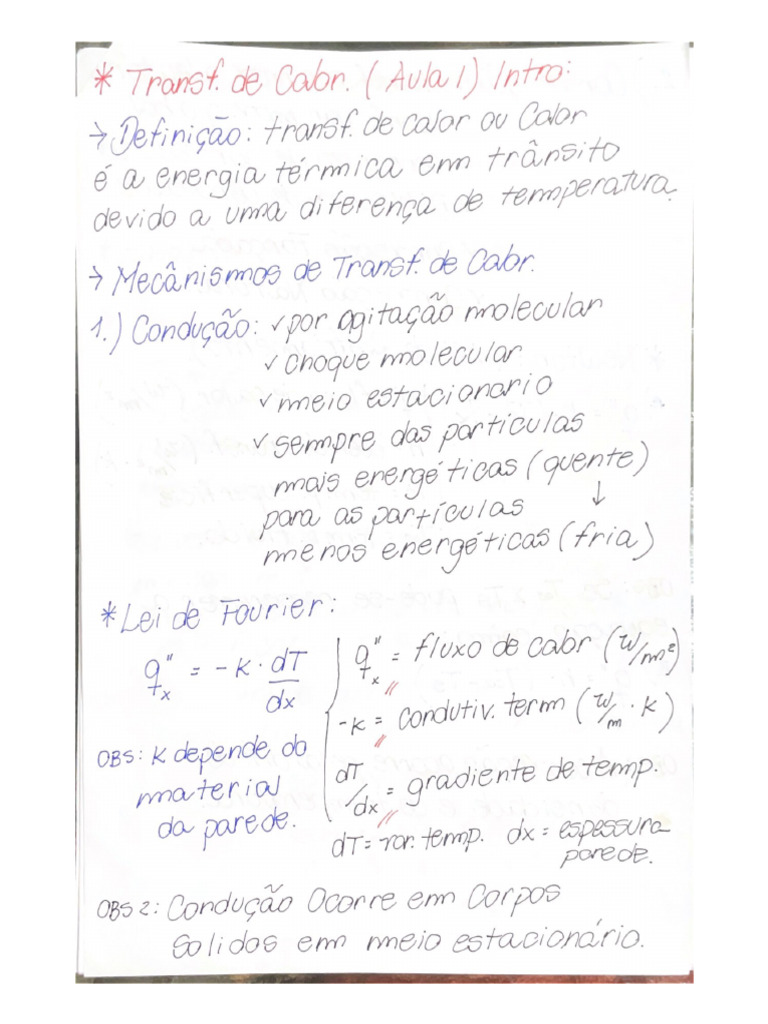 * Transf. de Calor. (Aula 1) Intro:
→ Definição: transf. de calor ou Calor
é a energia térmica em trânsito
devido a uma diferença de temperatura.
→ Mecânismos de Transf. de Calor.
1.) Condução: ✓ por agitação molecular
✓ choque molecular
✓ meio estacionario
✓ sempre das partículas
mais energéticas (quente)
↓
para as partículas
menos energéticas (fria)
* Lei de Fourier:
q"x = -K · dT/dx
OBS: K depende do
material
da parede.
q"x = fluxo de calor (W/m²)
-K = condutiv. term (W/m · K)
dT/dx = gradiente de temp.
dT = var. temp. dx = espessura
parede.
OBS 2: Condução Ocorre em Corpos
Solidos em meio estacionário.